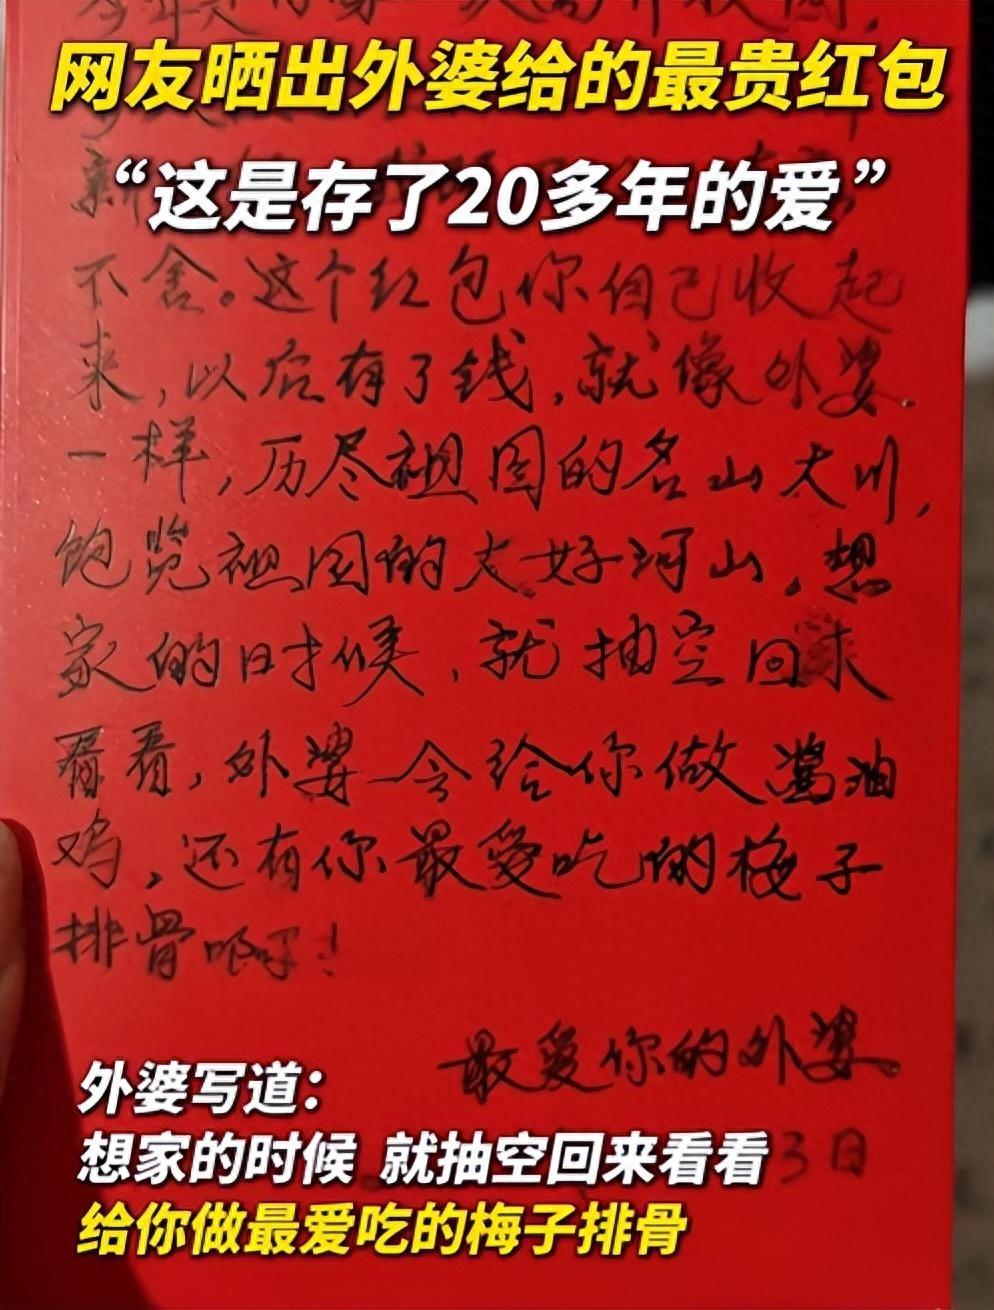 网友晒出外婆给的最贵红包
“这是存了20多年的爱”
不舍。这个红包你自己收起
来，以后有了钱，就像外婆
一样，历尽祖国的名山大川，
饱览祖国的大好河山，想
家的时候，就抽空回来
看看，外婆会给你做酱油
鸡，还有你最爱吃的梅子
排骨啊！
最爱你的外婆。
3日
外婆写道：
想家的时候 就抽空回来看看
给你做最爱吃的梅子排骨